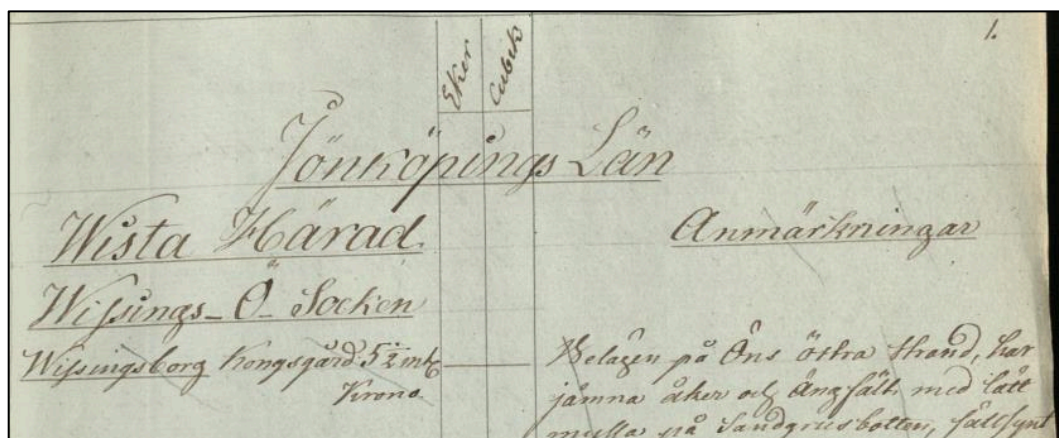 1.
Eker
Cubik
Jönköpings Län
Wista Härad
Anmärkningar
Wisings-Ö Socken
Wisingsborg Kongsgård 5½ mtl
Krono.
Belägen på Öns östra strand, har
jämna åker och Ängsfält, med lätt
mylla på Sandgrusbotten, sällsynt